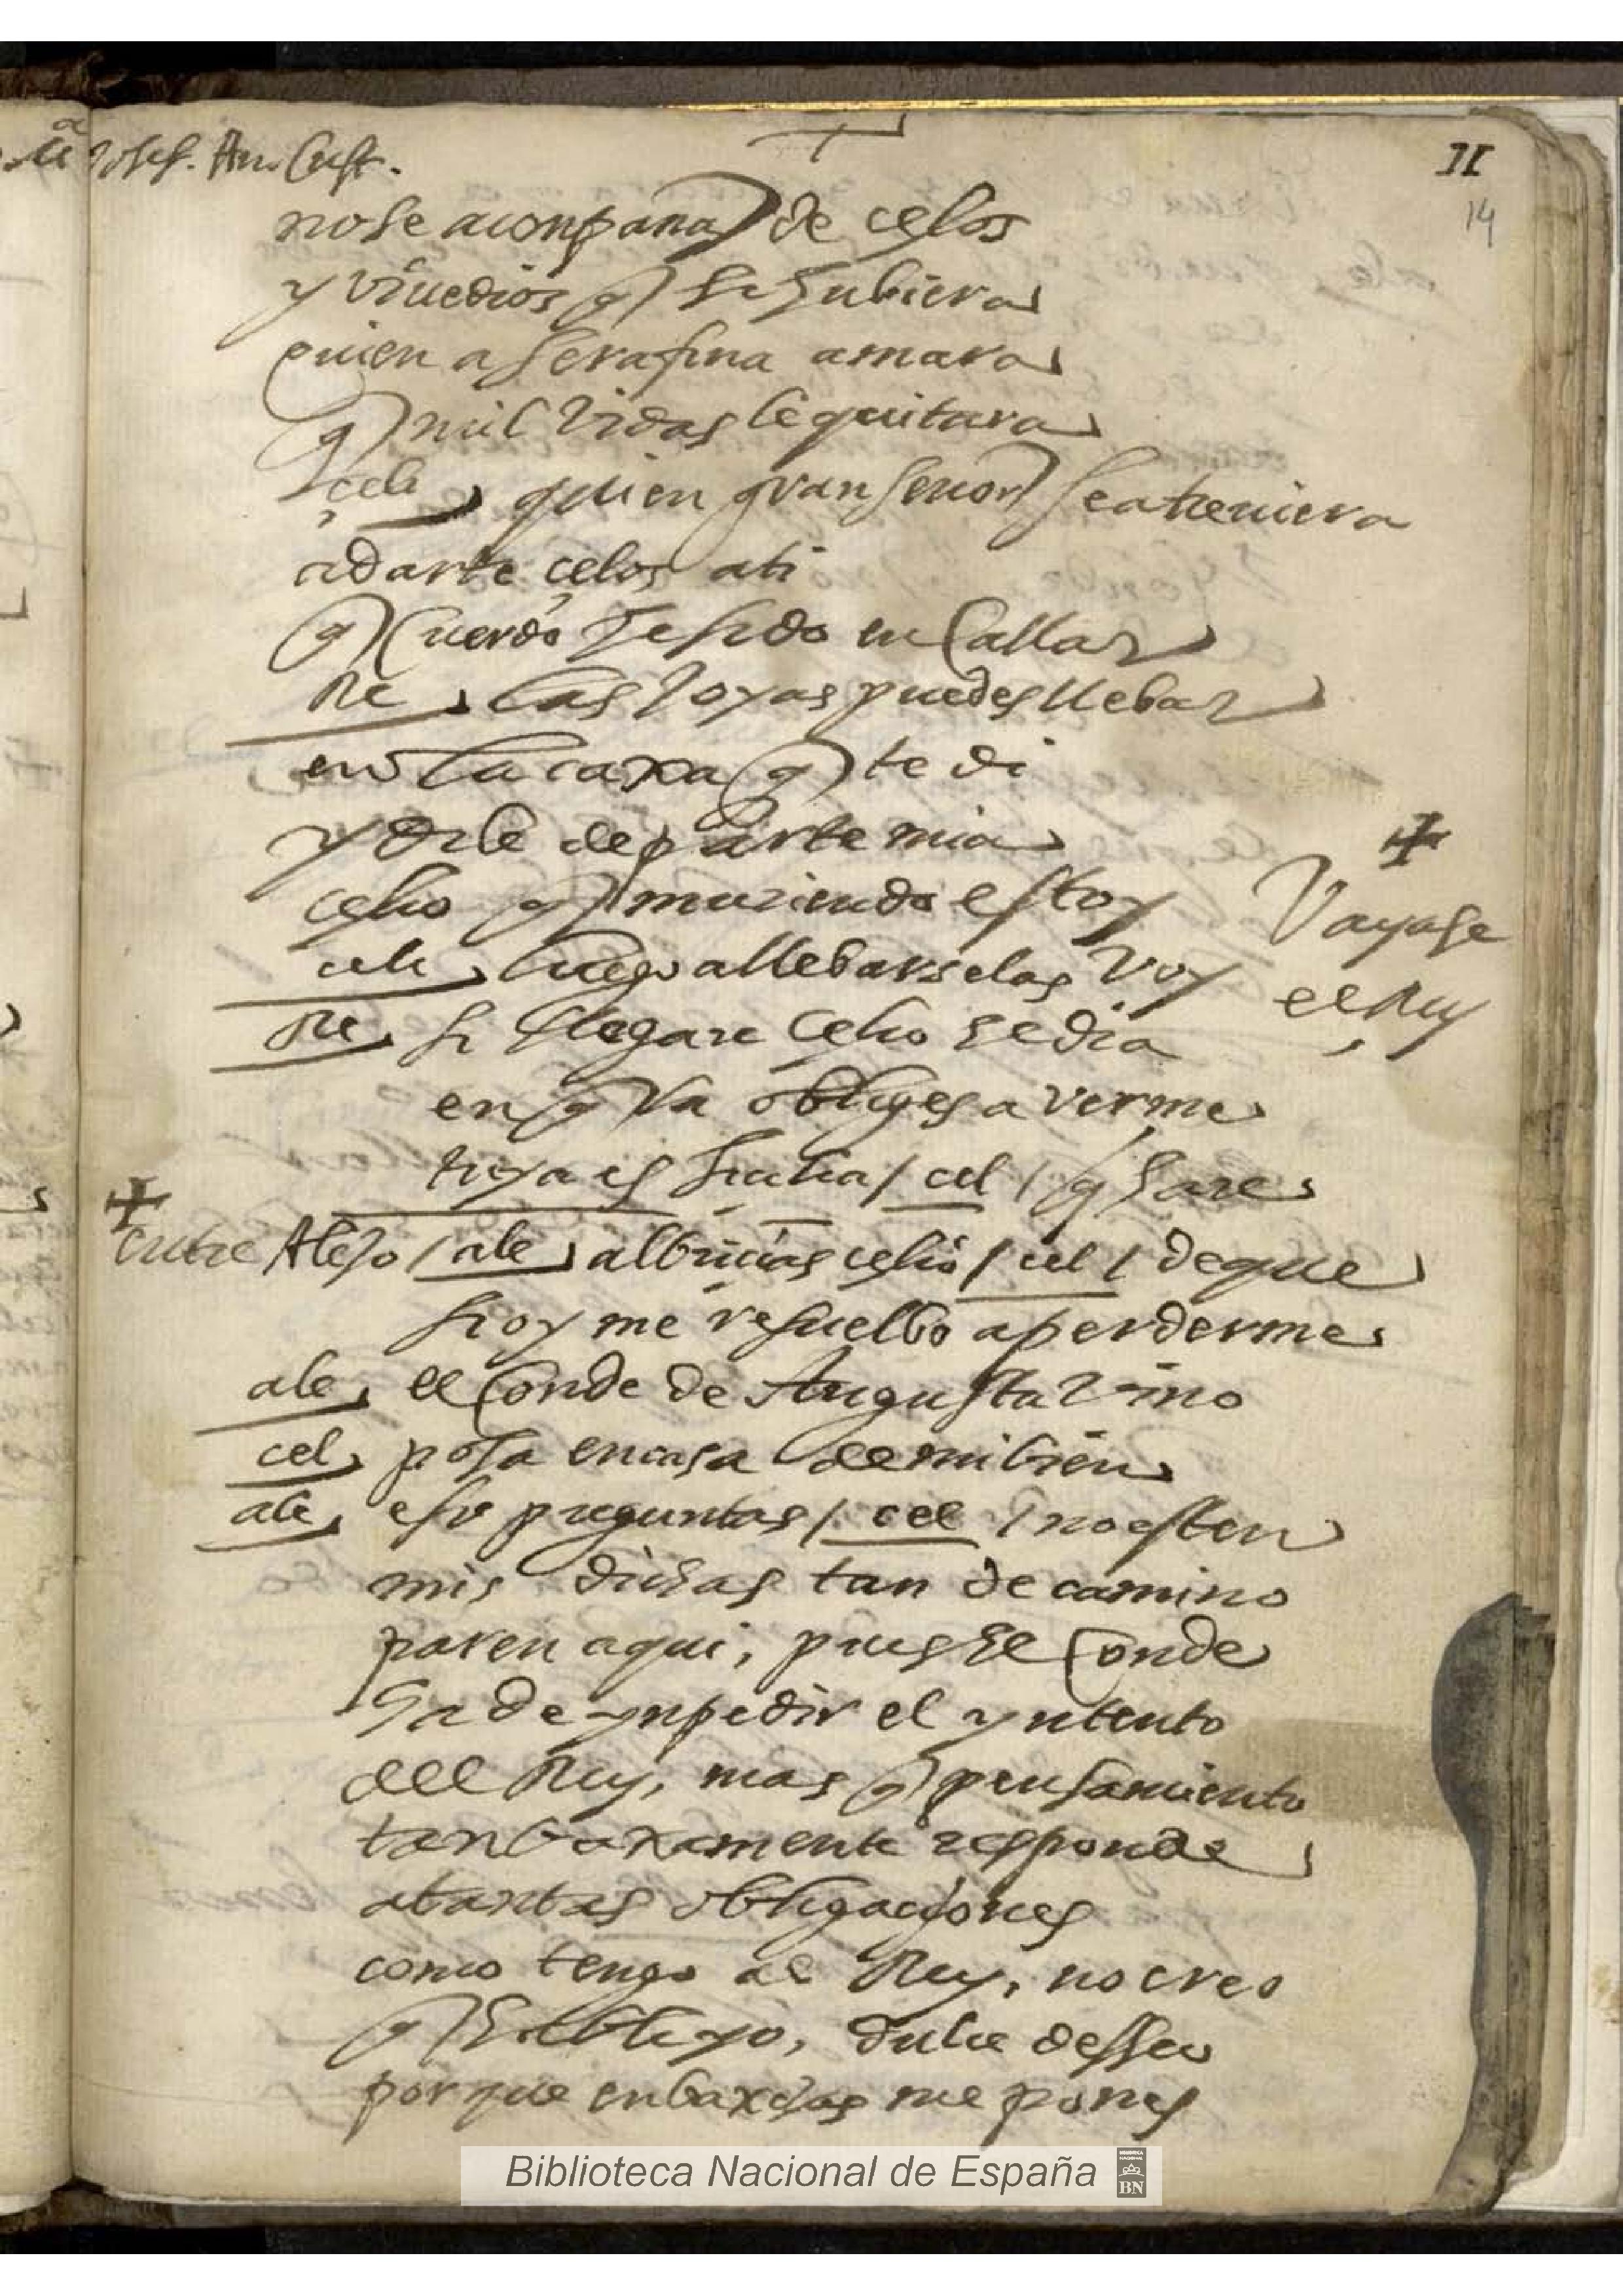 Josef. An. Cust.
II
14
no se aconpana de çelos
y viue dios q si hubiera
quien a serafina amara
q mil vidas le quitara
çeli quien gran señor se atreuiera
a darte çelos a ti
q Cuerdo he sido en Callar
Re las Joyas puedes llebar
en la caxa q te di
y dile de parte mia
celio q muriendo estoy
celi luego a lleбarselas voy
Vayase
el Rey
Re si llegare Celio el dia
en q la obliges a verme
tuya es sicilia / cel / q hare
entre Alejo / ale albricias celio / cel / de que
hoy me resuelbo a perderme
ale el Conde de Augusta vino
cel posa en casa de mi bien
ale eso preguntas / cel / no esten
mis dichas tan de camino
paren aqui, pues el Conde
ha de ynpedir el yntento
del Rey, mas q pensamiento
tan baxamente responde
a tantas obligaçiones
como tengo al Rey, no creo
dulce desseo
porque en baxeças me pones
Biblioteca Nacional de España
BN